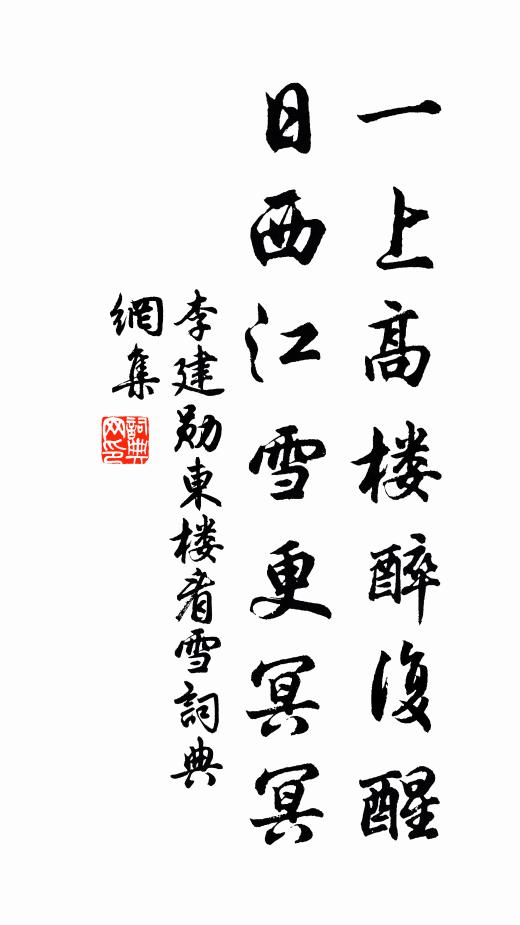 一上高楼醉復醒
日西江雪更冥冥
李建勛東楼看雪詞典
網集
詞典
网印